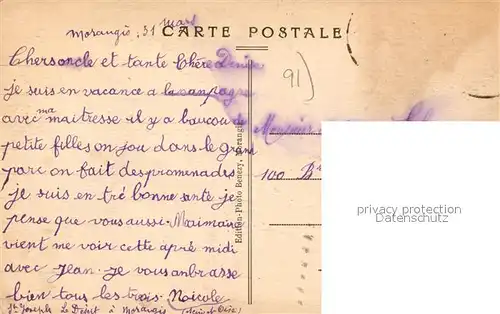 Morangis, 31 mars
CARTE POSTALE
Chersoncle et tante Chère Denise
91)
je suis en vacance a la canpagne
avec ma maitresse il y a baucou de
Monsieur
petite filles on jou dans le grand
parc on fait des promenades
100 Bd
je suis en tré bonne sante je
pense que vous aussi. Maimaine
vient me voir cette apré midi
avec Jean. Je vous anbrasse
bien tous les trois. Noicole
St Joseph Le Désert à Morangis (Seine et Oise)
Edition-Photo Benezy, Morangis
privacy protection
Datenschutz